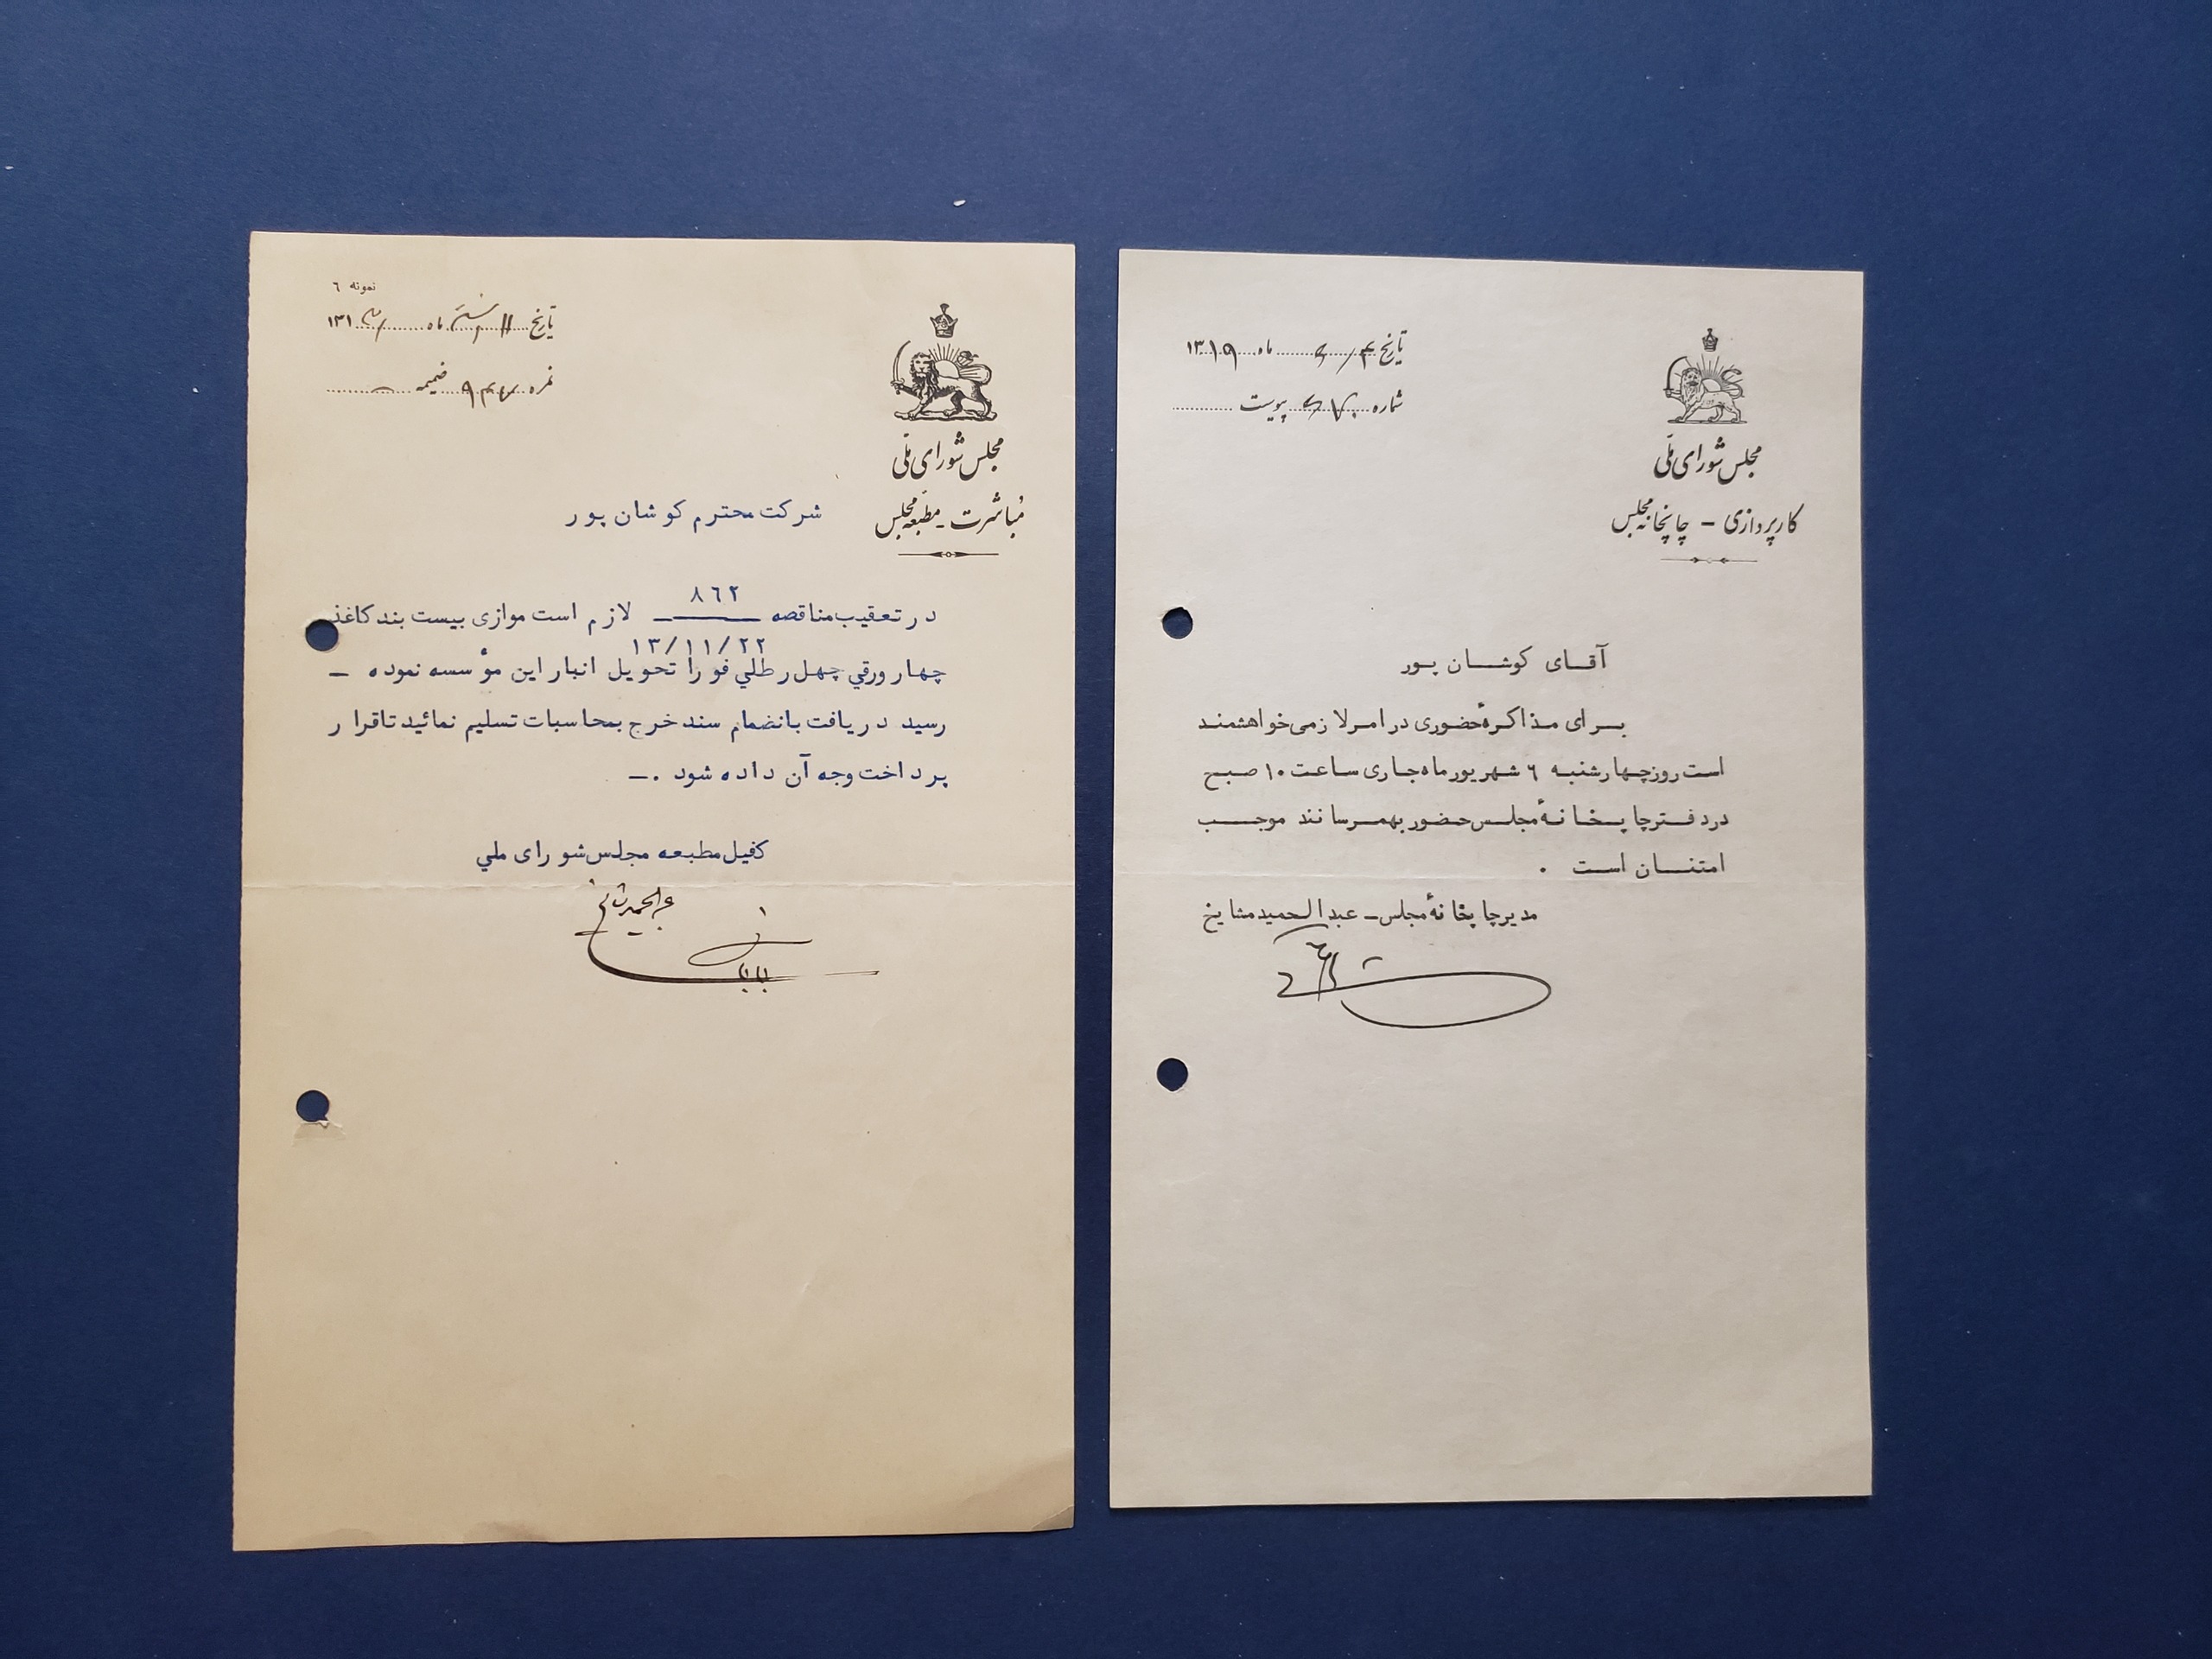 نمونه ٦
تاریخ ١١ ماه ١٣١
نمره ضمیمه
مجلس شورای ملّی
مباشرت - مطبعه مجلس
شرکت محترم کوشان پور
٨٦٢
در تعقیب مناقصه ــــــ لازم است موازی بیست بند کاغذ
١٣/١١/٢٢
چهار ورقي چهل رطلي فورا تحویل انبار این مؤسسه نموده –
رسید دریافت بانضمام سند خرج بمحاسبات تسلیم نمائید تا قرار
پرداخت وجه آن داده شود .–
کفیل مطبعه مجلس شورای ملي
تاریخ ۴/۶ ماه ١٣١٩
شماره پیوست
مجلس شورای ملّی
کارپردازی – چاپخانه مجلس
آقای کوشان پور
برای مذاکرهٔ حضوری در امر لازمی خواهشمند
است روز چهارشنبه ٦ شهریور ماه جاری ساعت ١٠ صبح
در دفتر چاپخانهٔ مجلس حضور بهمرسانند موجب
امتنان است .
مدیر چاپخانهٔ مجلس – عبدالحمید مشایخ